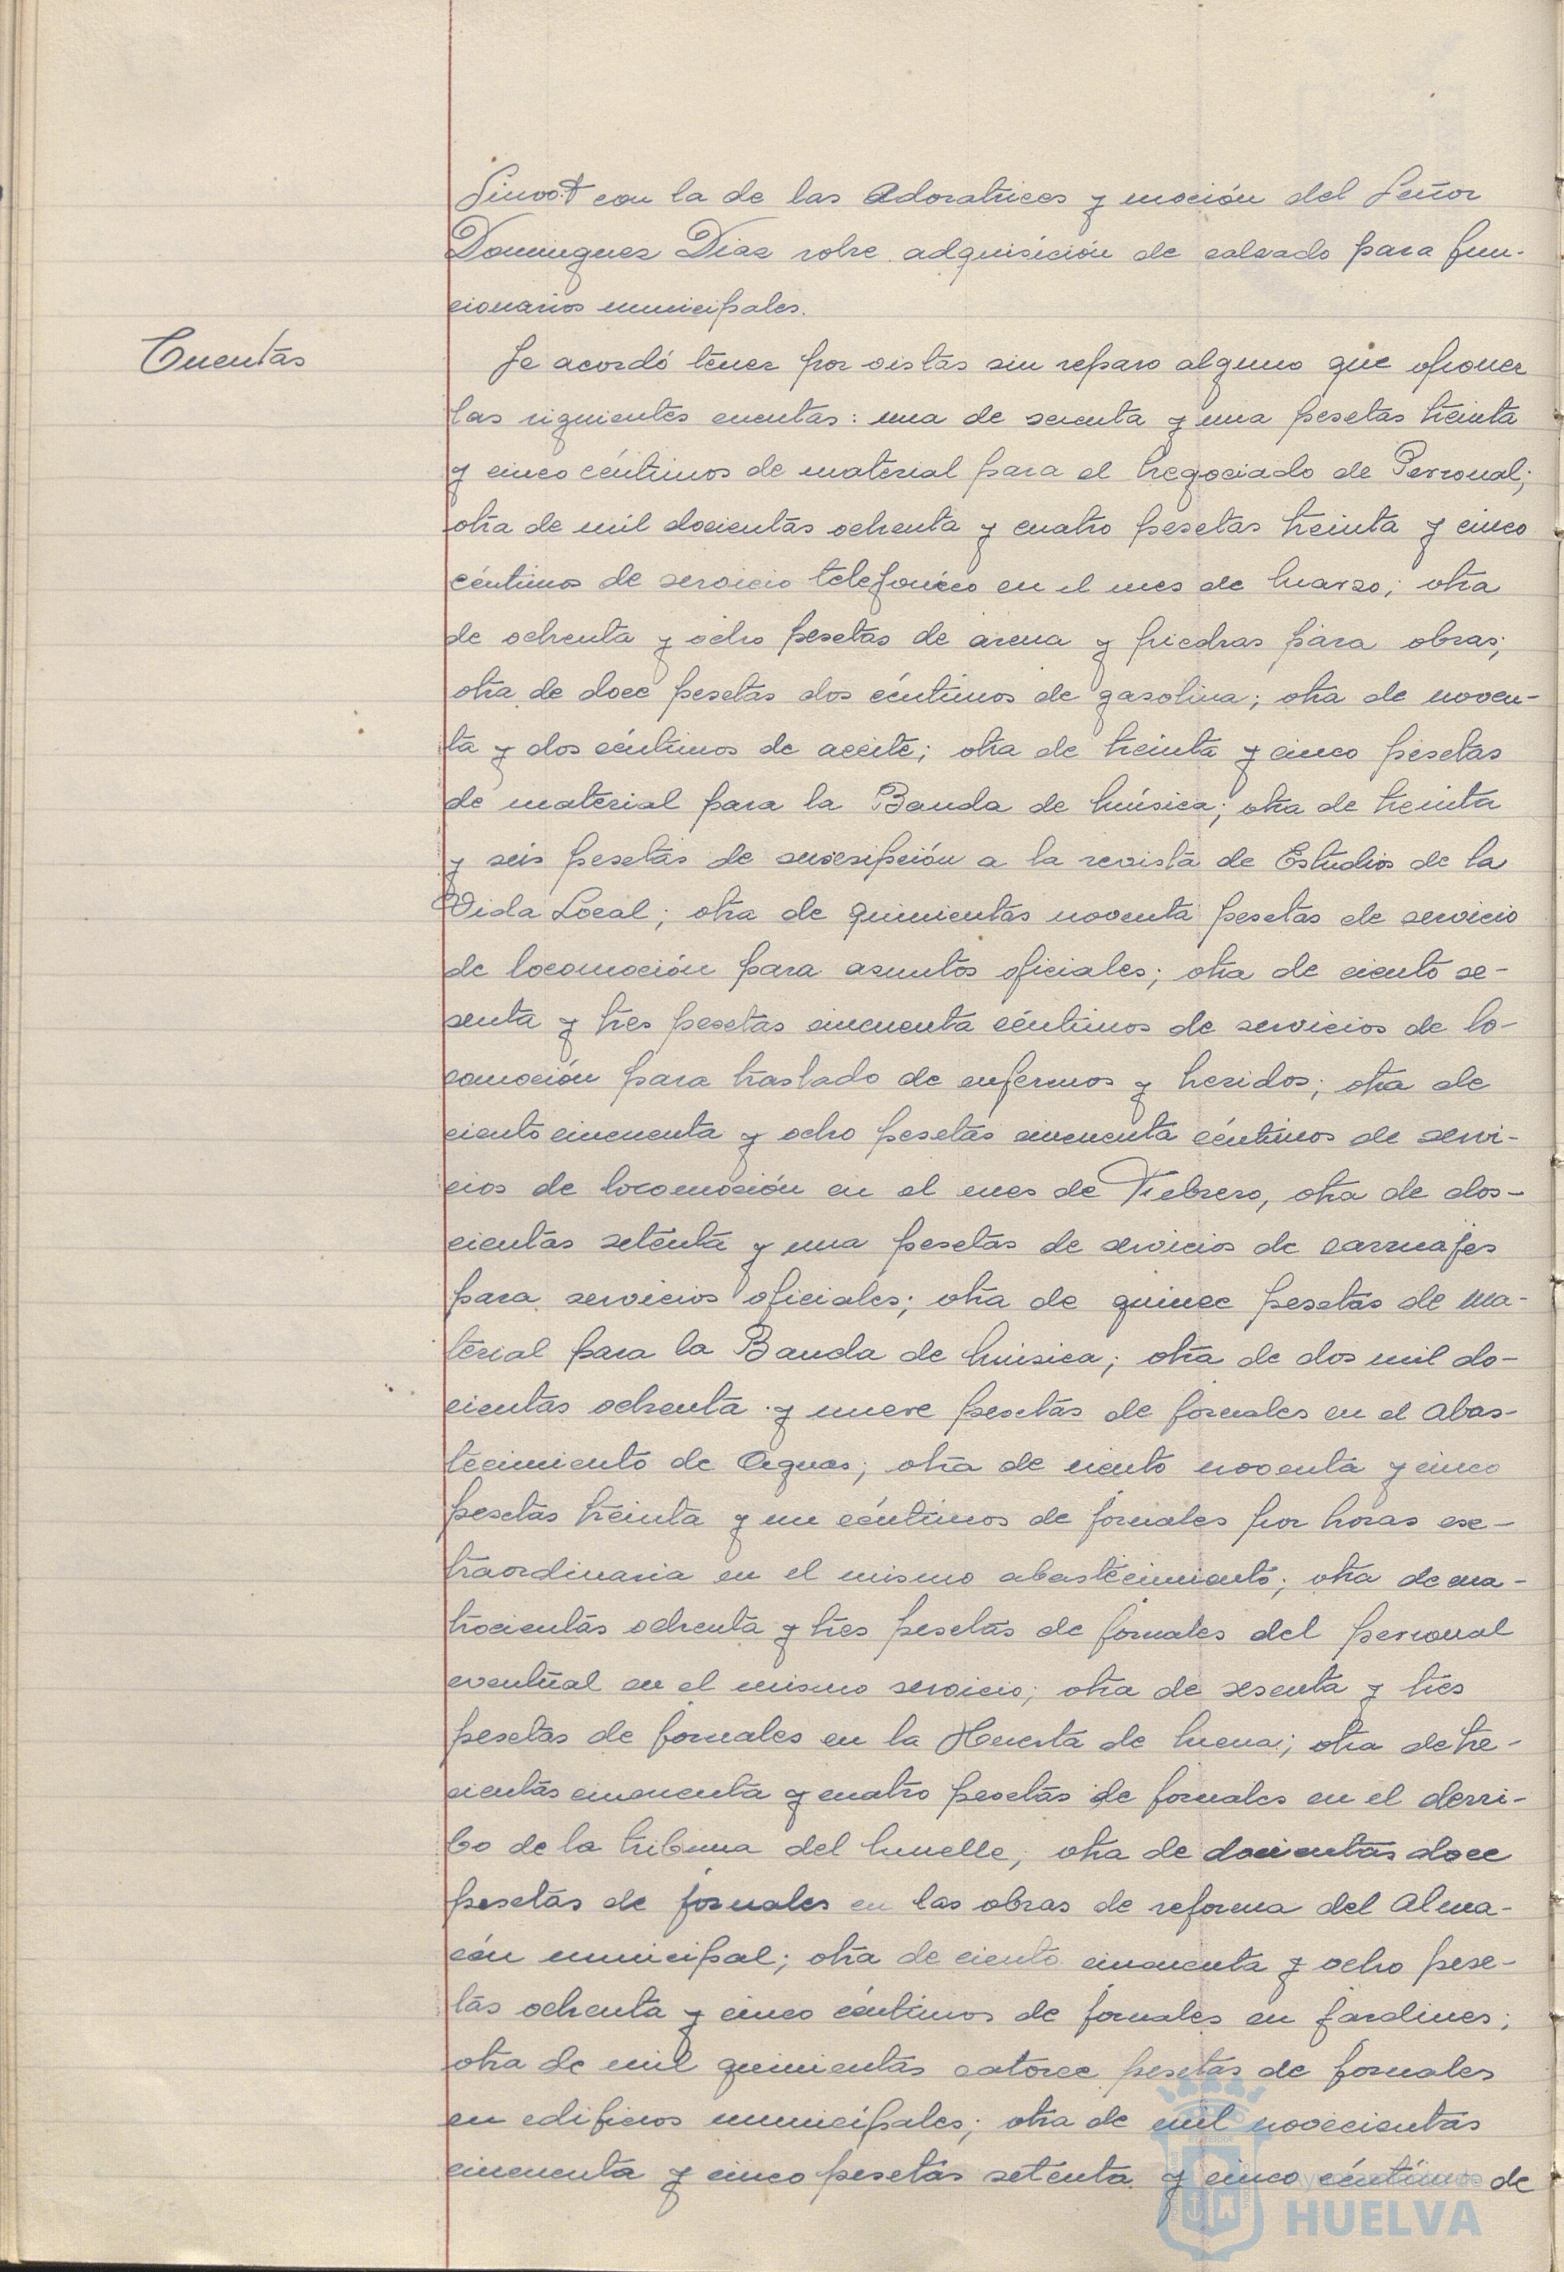 Sinvot con la de las Adoratrices y moción del Señor
Dominguez Diaz sobre adquisición de calzado para fun-
cionarios municipales.
Cuentas
Se acordó tener por vistas sin reparo alguno que oponer
las siguientes cuentas: una de y una pesetas treinta
y cinco céntimos de material para el Negociado de Personal;
otra de mil docientas ochenta y cuatro pesetas treinta y cinco
céntimos de servicio telefonico en el mes de Marzo; otra
de ochenta y ocho pesetas de arena y piedras para obras;
otra de doce pesetas dos céntimos de gasolina; otra de noven-
ta y dos céntimos de aceite; otra de treinta y cinco pesetas
de material para la Banda de Música; otra de treinta
y seis pesetas de suscripción a la revista de Estudios de la
Vida Local; otra de quinientas noventa pesetas de servicio
de locomoción para asuntos oficiales; otra de ciento se-
senta y tres pesetas cincuenta céntimos de servicios de lo-
comoción para traslado de enfermos y heridos; otra de
ciento cincuenta y ocho pesetas cincuenta céntimos de servi-
cios de locomoción en el mes de Febrero, otra de dos-
cientas setenta y una pesetas de servicios de carruajes
para servicios oficiales; otra de quince pesetas de ma-
terial para la Banda de Música; otra de dos mil do-
cientas ochenta y nueve pesetas de jornales en el abas-
tecimiento de Aguas; otra de ciento noventa y cinco
pesetas treinta y un céntimos de jornales por horas ex-
traordinaria en el mismo abastecimiento; otra de cua-
trocientas ochenta y tres pesetas de jornales del personal
eventual en el mismo servicio; otra de sesenta y tres
pesetas de jornales en la Huerta de Mena; otra de tre-
cientas cincuenta y cuatro pesetas de jornales en el derri-
bo de la tribuna del Muelle, otra de docientas doce
pesetas de jornales en las obras de reforma del Alma-
cén municipal; otra de ciento cincuenta y ocho pese-
tas ochenta y cinco céntimos de jornales en jardines;
otra de mil quinientas catorce pesetas de jornales
en edificios municipales; otra de mil novecientas
cincuenta y cinco pesetas setenta y cinco céntimos de
HUELVA